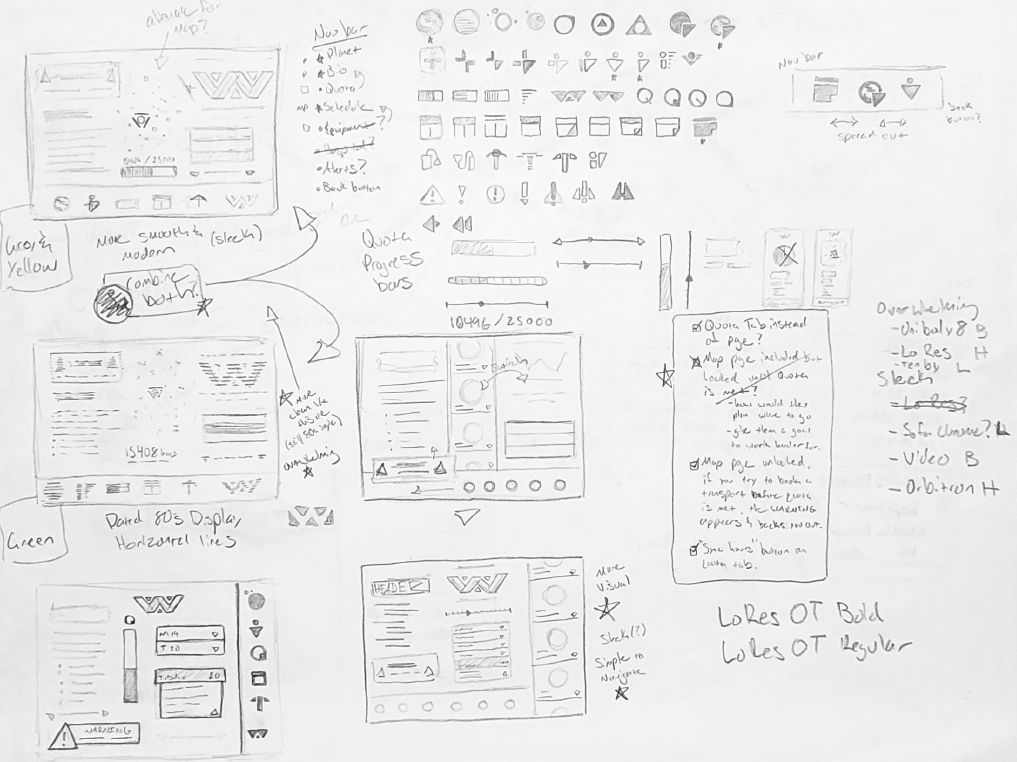 alternate for
map?
Nav bar
Planet
Bio
Quota
Schedule
Equipment
Hospital?
Alerts?
Back button
/25000
Nav bar
back
button?
spread out
Grey &
Yellow
More smooth &
modern
(sleek)
combine
both?
Quota
Progress
bars
10496/25000
15408 hours
More
clean like
this one
(still 80s style)
overwhelming
Green
Dated 80s Display
Horizontal lines
Quota Tab instead
of page?
Map page included but
locked until quota
is met?
-how would they
plan where to go
-give them a goal
to work harder for.
Map page unlocked,
if you try to book a
transport before quota
is met, the WARNING
appears & backs you out.
"Sync hours" button on
quota tab.
Overwhelming
-Unibody 8 B
-Lo Res H
-Tenby L
Sleek
-Lo Res?
-Sofachrome? L
-Video B
-Orbitron H
M 14
T 20
WARNING
HEADER
More
Visual
Sleek(?)
Simple to
Navigate
LoRes OT Bold
LoRes OT Regular